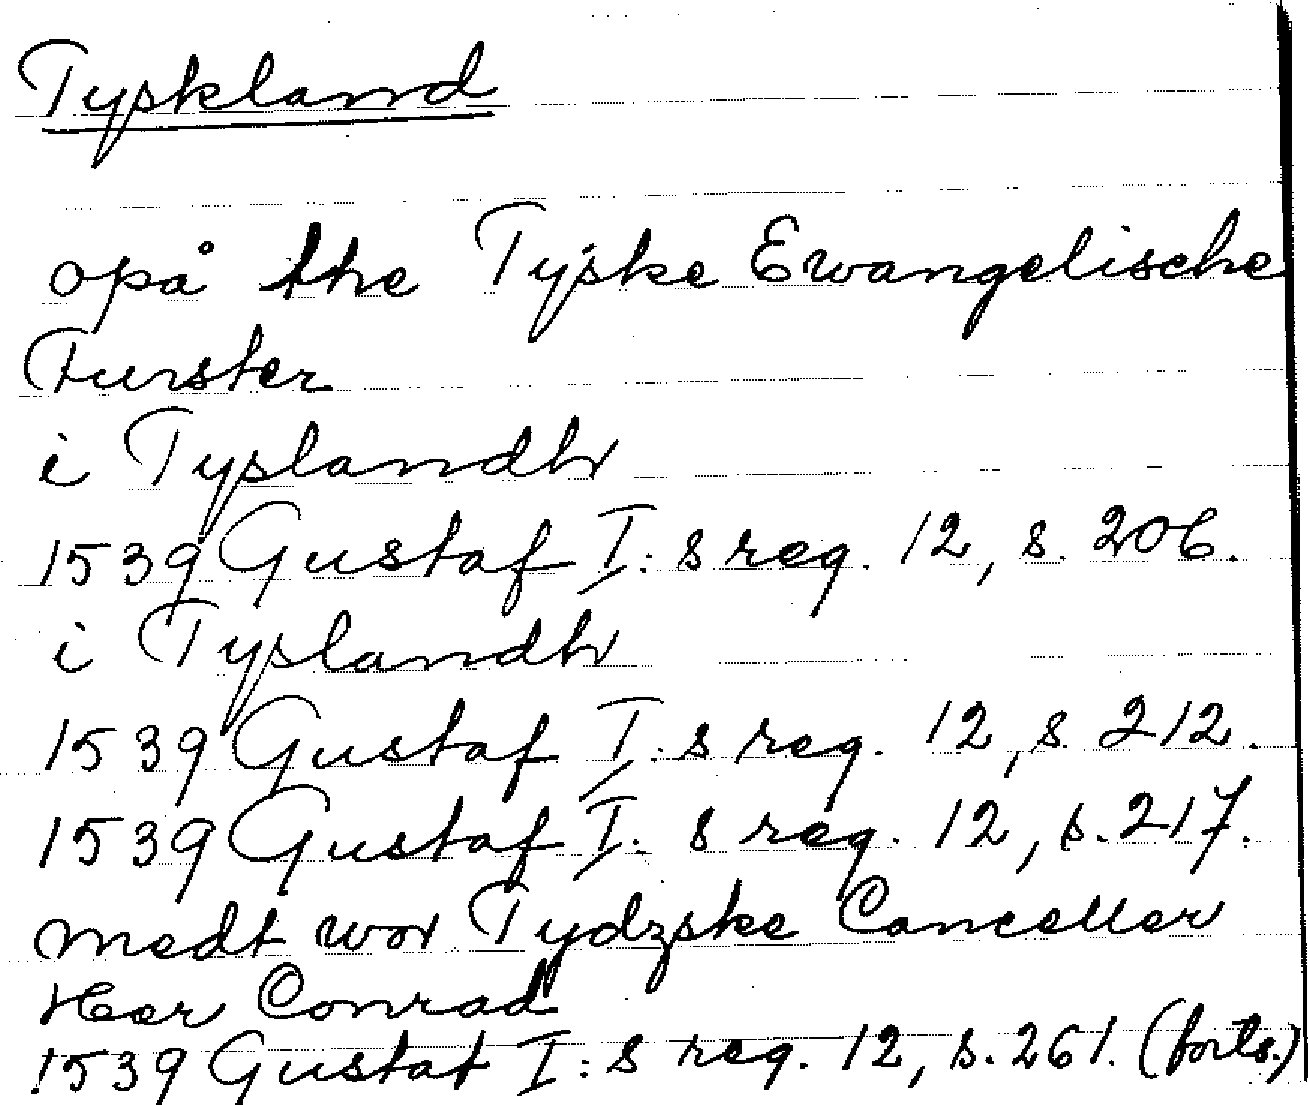 Tyskland
opå the Tyske Ewangelische
Furster
i Tyslandh
1539 Gustaf I: s reg. 12, s. 206.
i Tyslandh
1539 Gustaf I: s reg. 12, s. 212.
1539 Gustaf I: s reg. 12, s. 217.
medt wor Tydzske Canceller
Herr Conrad
1539 Gustaf I: s reg. 12, s. 261. (forts.)